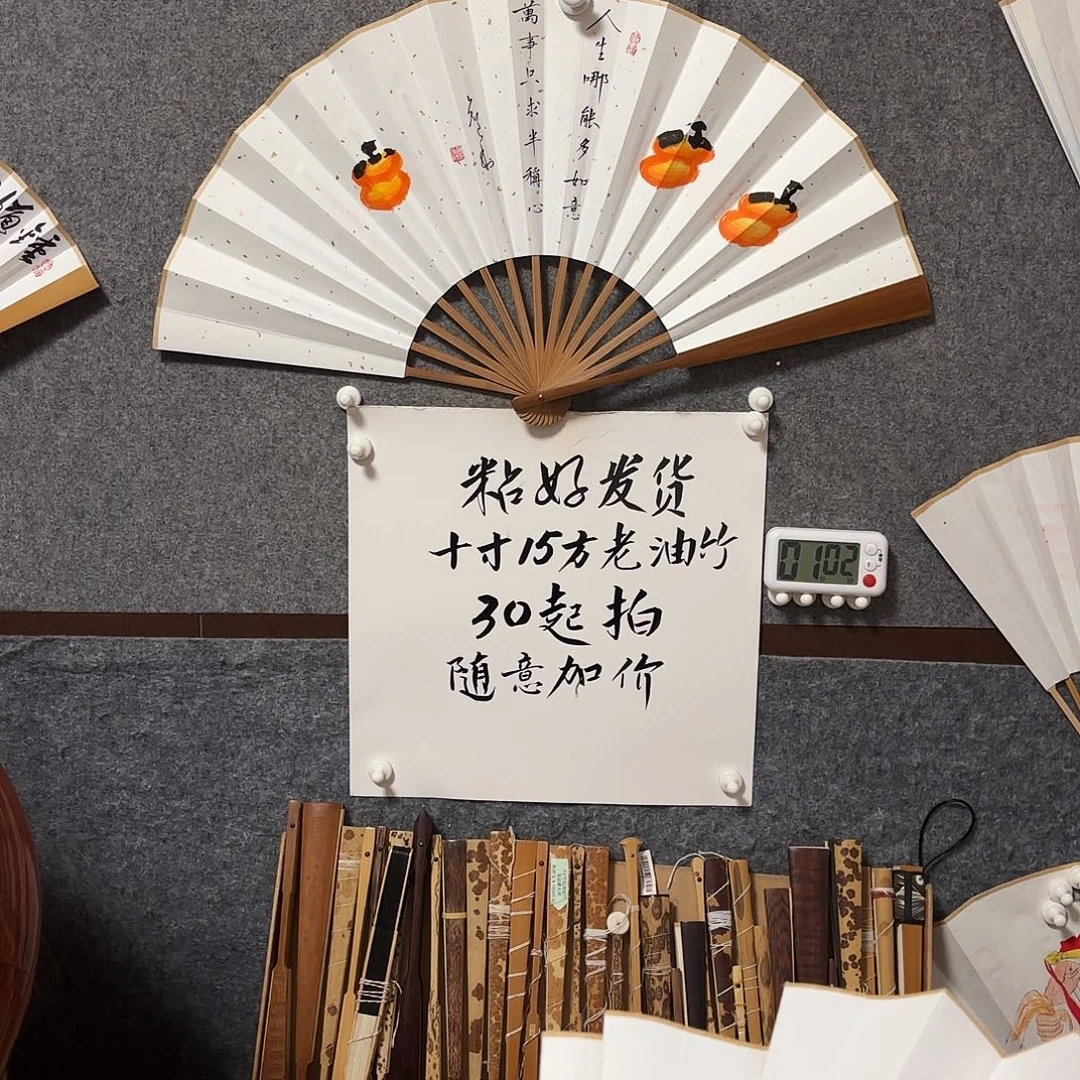 人生哪能多如意
萬事只求半稱心
粘好发货
十寸15方老油竹
30起拍
随意加价
0102